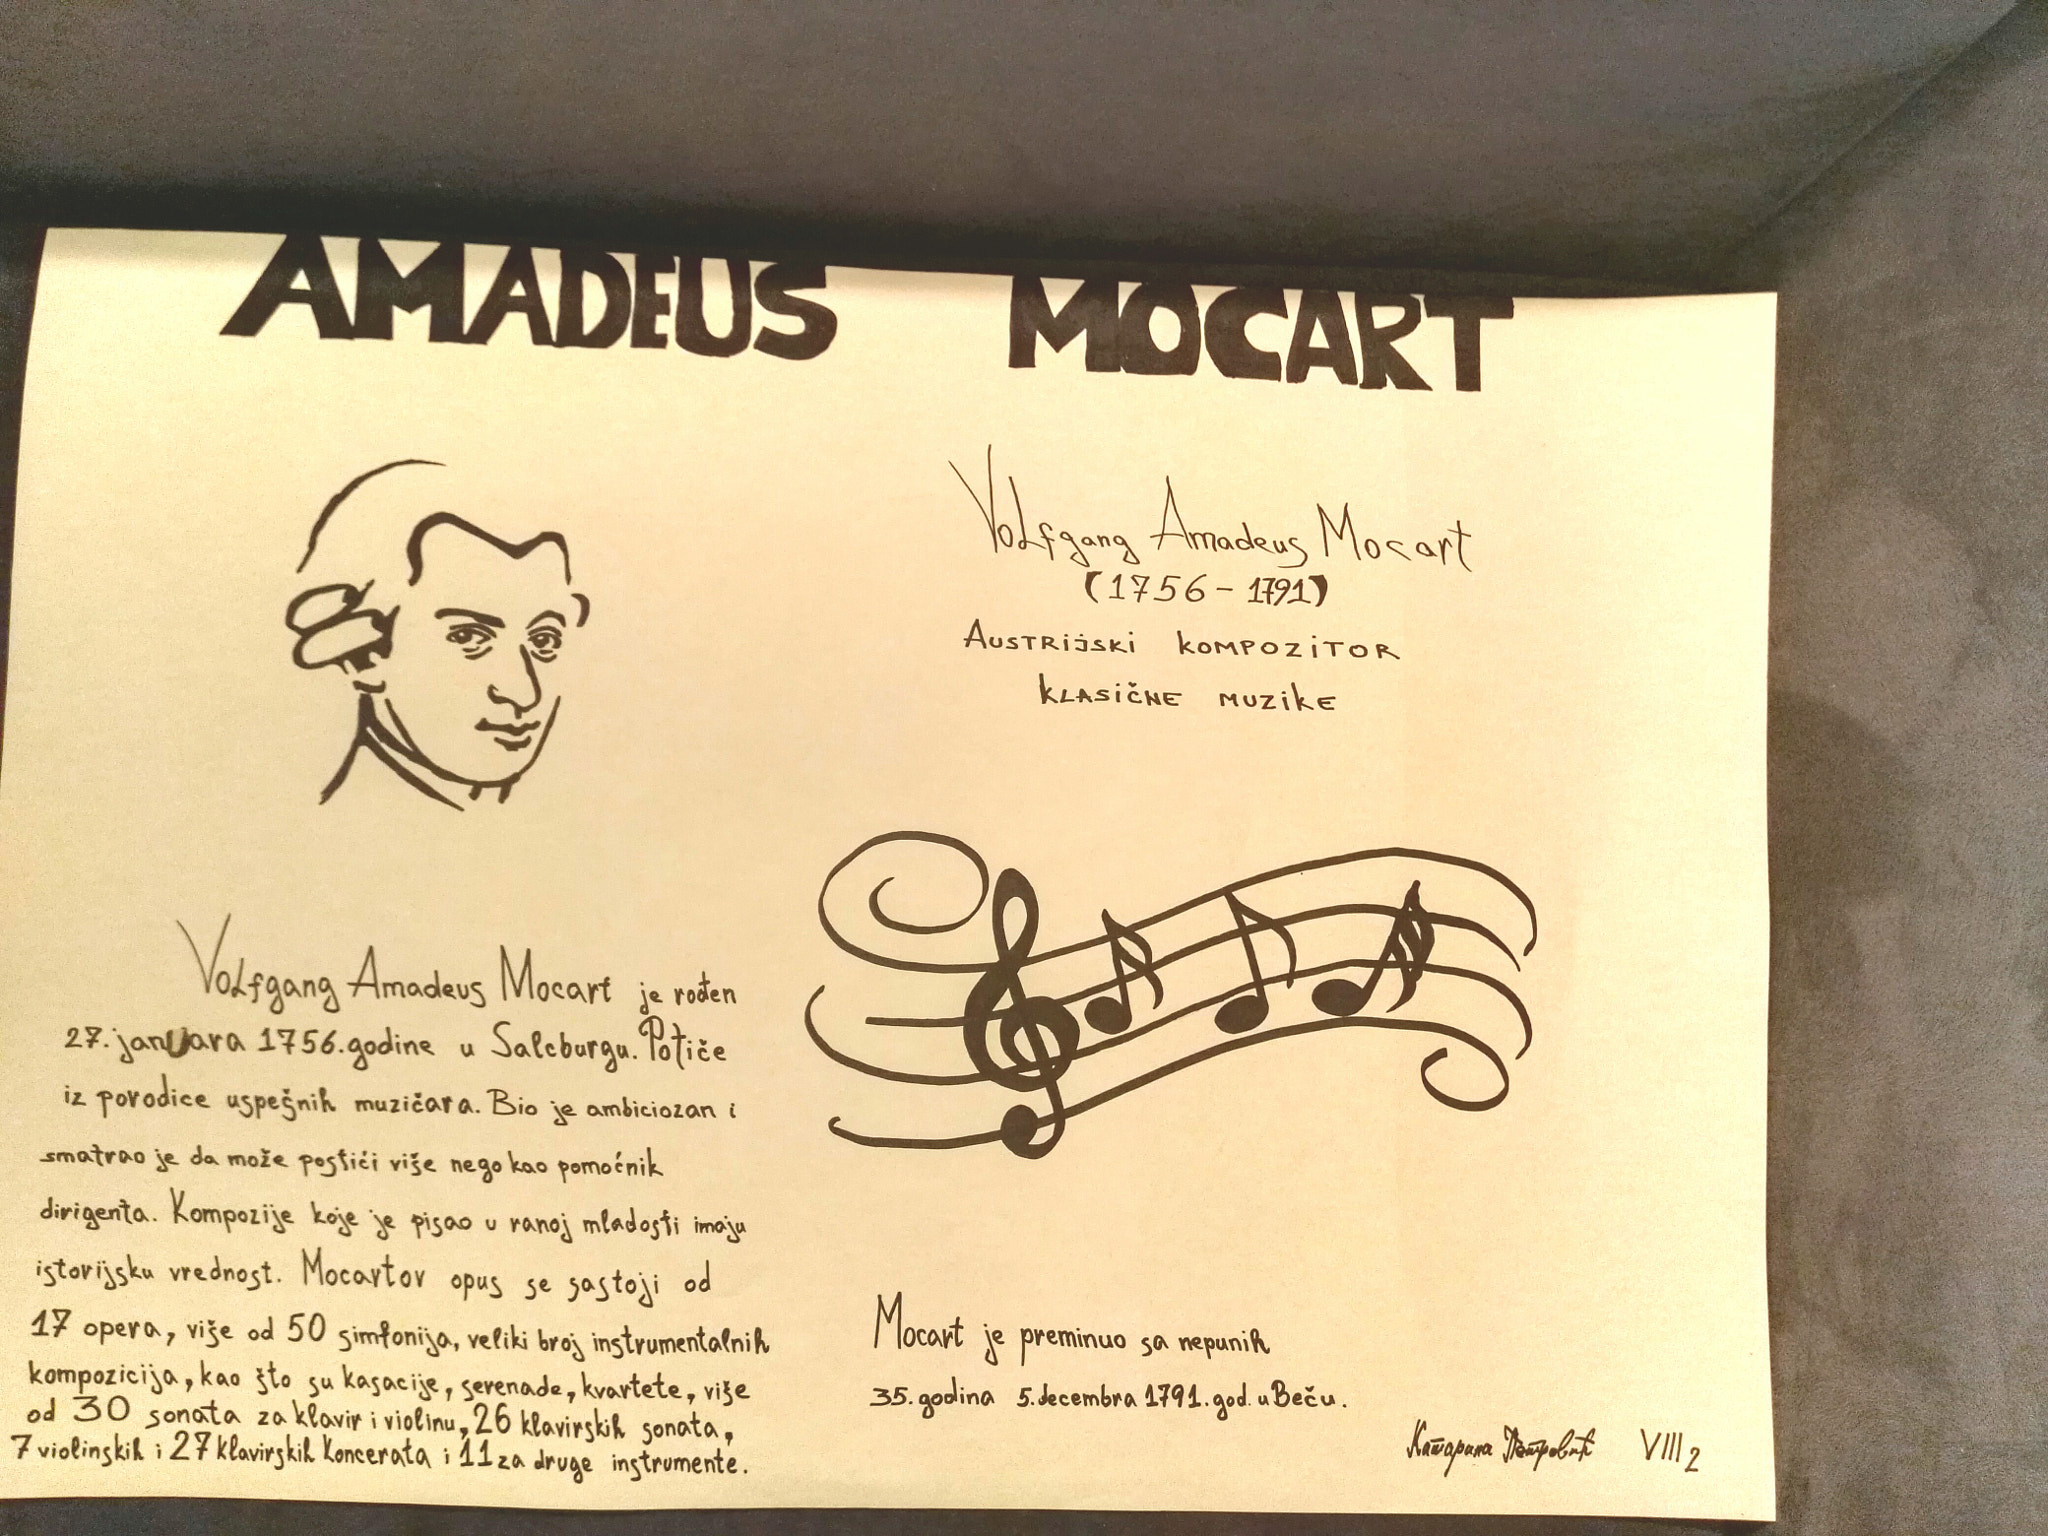 AMADEUS MOCART
Volfgang Amadeus Mocart
(1756-1791)
Austrijski kompozitor
klasične muzike
Volfgang Amadeus Mocart je rođen
27. januara 1756. godine u Salcburgu. Potiče
iz porodice uspešnih muzičara. Bio je ambiciozan i
smatrao je da može postići više nego kao pomoćnik
dirigenta. Kompozije koje je pisao u ranoj mladosti imaju
istorijsku vrednost. Mocartov opus se sastoji od
17 opera, više od 50 simfonija, veliki broj instrumentalnih
kompozicija, kao što su kasacije, serenade, kvartete, više
od 30 sonata za klavir i violinu, 26 klavirskih sonata,
7 violinskih i 27 klavirskih koncerata i 11 za druge instrumente.
Mocart je preminuo sa nepunih
35. godina 5. decembra 1791. god. u Beču.
Катарина Петровић VIII 2